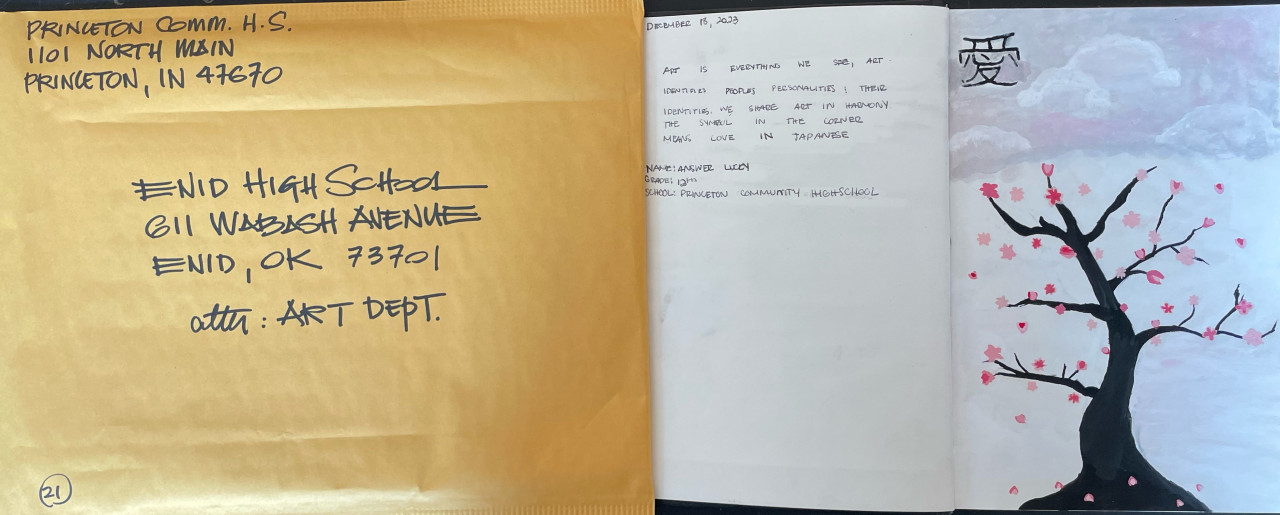 PRINCETON COMM. H.S.
1101 NORTH MAIN
PRINCETON, IN 47670
ENID HIGH SCHOOL
611 WABASH AVENUE
ENID, OK 73701
attn: ART DEPT.
21
DECEMBER 18, 2023
ART IS EVERYTHING WE SEE, ART
IDENTIFIES PEOPLES PERSONALITIES & THEIR
IDENTITIES. WE SHARE ART IN HARMONY
THE SYMBOL IN THE CORNER
MEANS LOVE IN JAPANESE
NAME: ANSWER LUCKY
GRADE: 12th
SCHOOL: PRINCETON COMMUNITY HIGHSCHOOL
愛